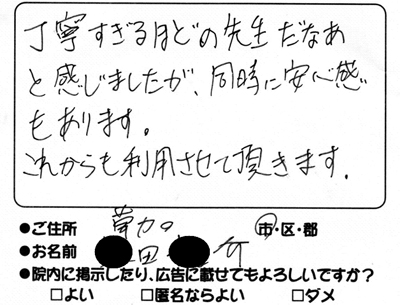 丁寧すぎるほどの先生だなあ
と感じましたが、同時に安心感
もあります。
これからも利用させて頂きます。
●ご住所 草加 市・区・郡
●お名前 田 介
●院内に掲示したり、広告に載せてもよろしいですか?
□よい □匿名ならよい □ダメ